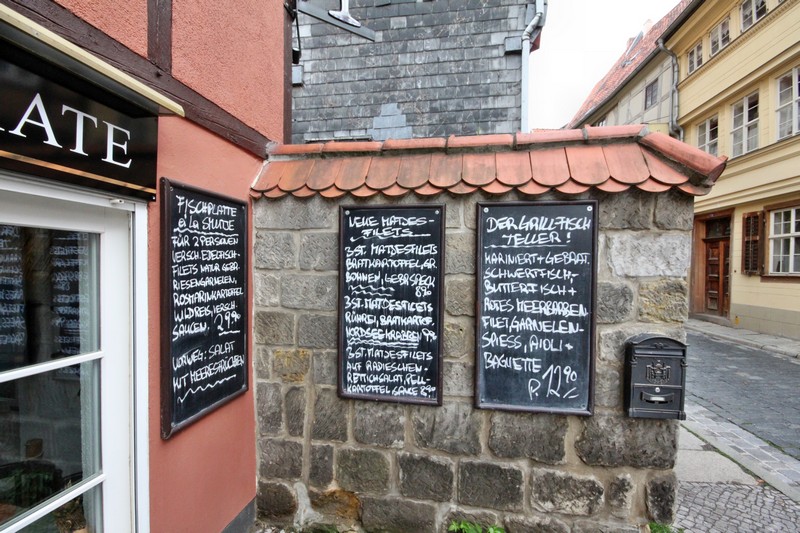 ATE
FISCHPLATTE
à la SHUTJE
FÜR 2 PERSONEN
VERSCH. EDELFISCH-
FILETS NATUR GEBR.
RIESENGARNELEN,
ROSMARINKARTOFFEL
WILDREIS, VERSCH.
SAUCEN, 29.90
VORWEG: SALAT
MIT MEERESFRÜCHTEN
NEUE MATJES-
FILETS
3 ST. MATJESFILETS
BRATKARTOFFEL, GR.
BOHNEN, GEB. SPECK
8,90
3 ST. MATJESFILETS
RÜHREI, BRATKARTOF.
NORDSEEKRABBEN
3 ST. MATJESFILETS
AUF RADIESCHEN-
RETTICHSALAT, PELL-
KARTOFFEL SAUCE 8,90
DER GRILL-FISCH
TELLER!
MARINIERT + GEBRAT.
SCHWERTFISCH,-
BUTTERFISCH +
ROTES MEERBARBEN-
FILET, GARNELEN-
SPIESS, AIOLI +
BAGUETTE
P. 12,90